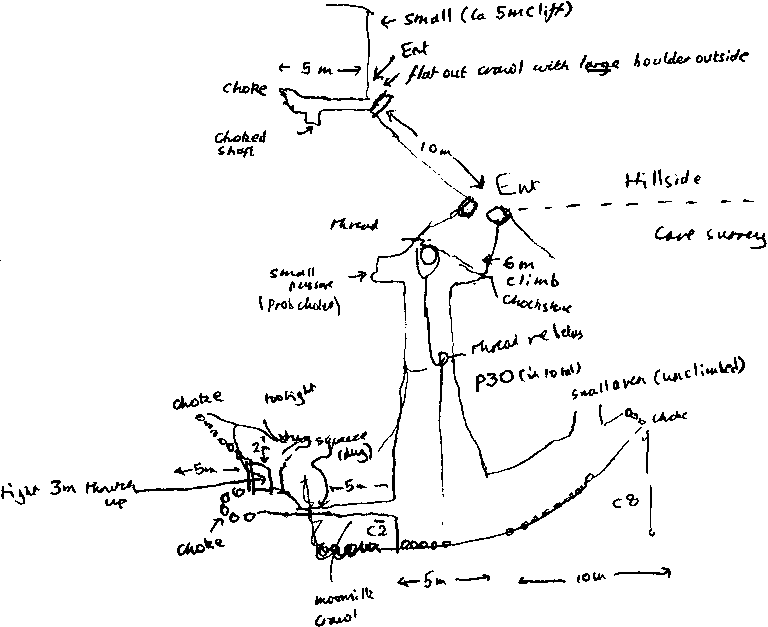 small (ca 5m cliff)
Ent
5m
flat out crawl with large boulder outside
choke
choked
shaft
10m
Ent
Hillside
Thread
Cave survey
small
passage
(prob choke)
6m
climb
chockstone
Thread rebelay
P30 (in total)
small aven (unclimbed)
choke
choke
too tight
squeeze
(dug)
2m
5m
5m
tight 3m thrutch
up
choke
C2
C8
moonmilk
crawl
5m
10m